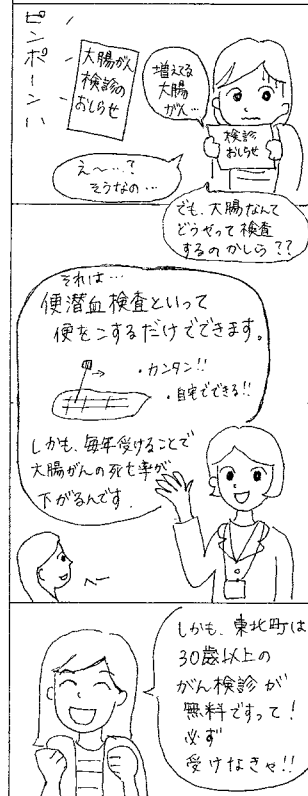 ピンポーン
大腸がん
検診の
おしらせ
増えてる
大腸
がん…
検診
おしらせ
え〜…?
そうなの…
でも、大腸なんて
どうやって検査
するのかしら??
それは…
便潜血検査といって
便をこするだけでできます。
・カンタン!!
・自宅でできる!!
しかも、毎年受けることで
大腸がんの死亡率が
下がるんです.
へ〜
しかも、東北町は
30歳以上の
がん検診が
無料ですって!
必ず
受けなきゃ!!